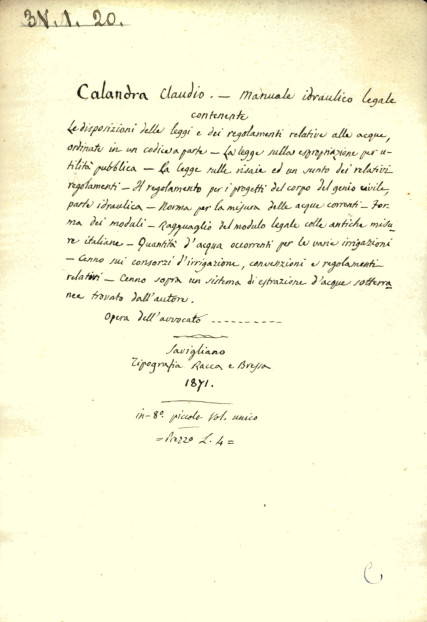 3N.1.20.
Calandra Claudio. — Manuale idraulico legale
contenente
Le disposizioni delle leggi e dei regolamenti relative alle acque,
ordinate in un codice a parte — La legge sulla espropriazione per u-
tilità pubblica — La legge sulle risaie ed un sunto dei relativi
regolamenti — Il regolamento per i progetti del corpo del genio civile,
parte idraulica — Norma per la misura delle acque correnti — For-
ma dei moduli — Ragguaglio del modulo legale colle antiche misu-
re italiane — Quantità d'acqua occorrenti per le varie irrigazioni
— Cenno sui consorzi d'irrigazione, convenzioni e regolamenti
relativi — Cenno sopra un sistema di estrazione d'acque sotterra
nee trovato dall'autore.
Opera dell'avvocato ----------
Savigliano
Tipografia Racca e Bressa
1871.
in-8° piccolo Vol. unico
= Prezzo L. 4 =
C